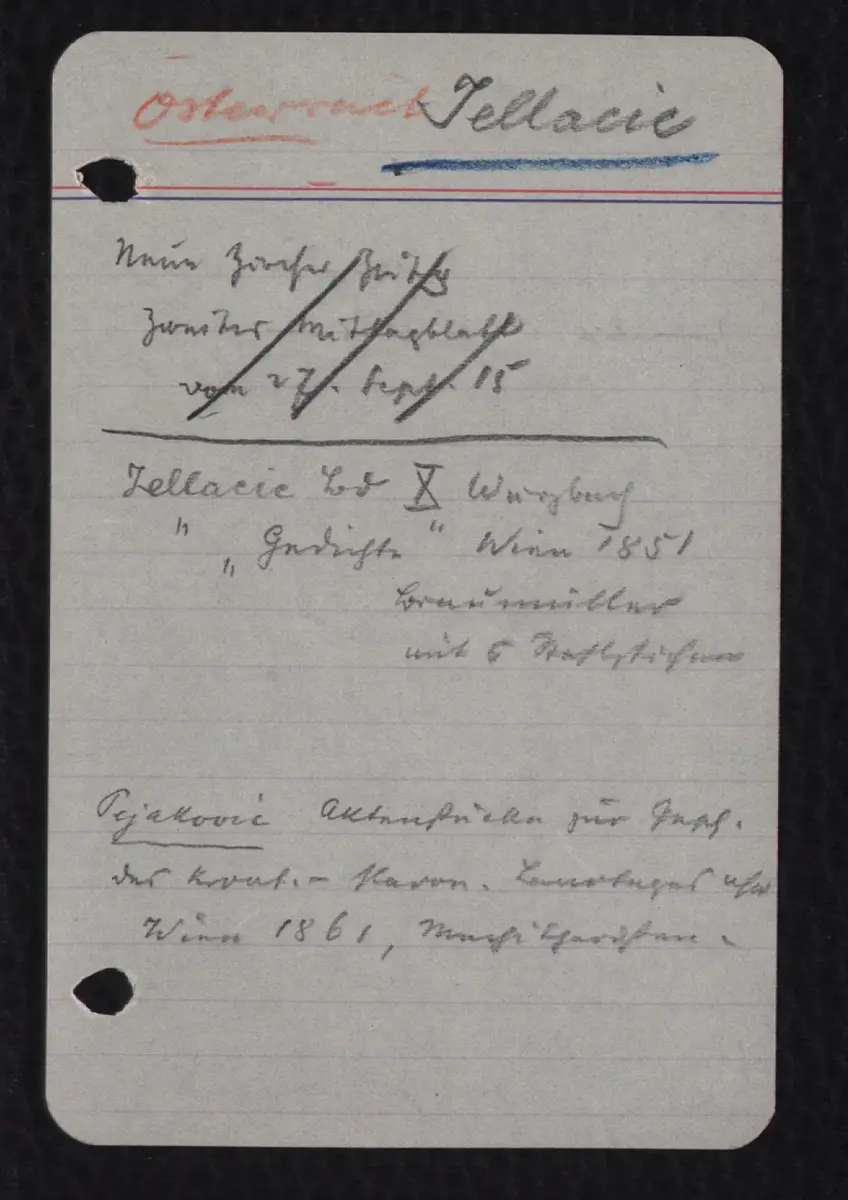 Österreich Jellacic
Neue Zürcher Zeitg
Zweites Mittagblatt
vom 27. Sept. 15
Jellacic Bd X Wurzbach
" „ Gedichte " Wien 1851
Braumüller
mit 5 Stahlstichen
Pejakovic Aktenstücke zur Gesch.
des kroat.- slavon. Landtages usw
Wien 1861, Mechitharisten.